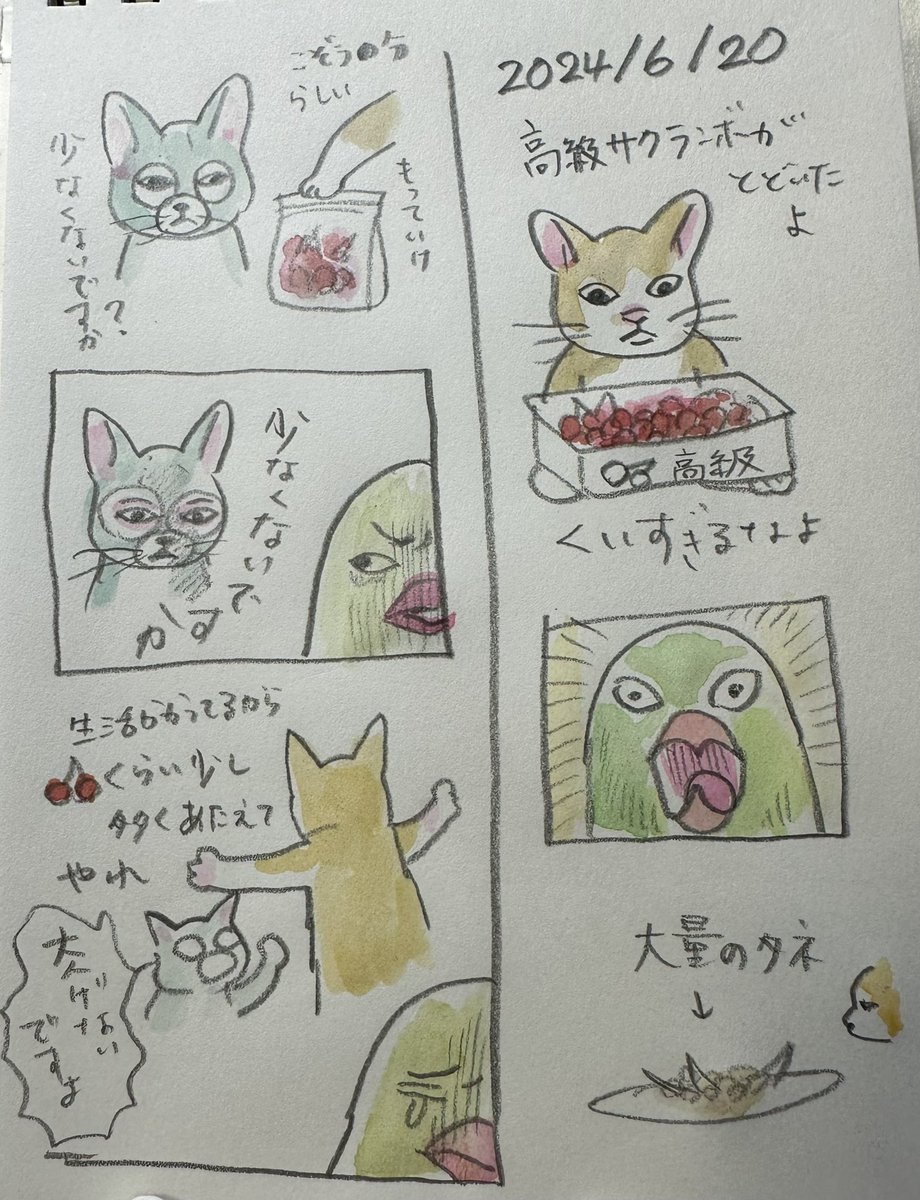 2024/6/20
高級サクランボーが
とどいた
よ
高級
くいすぎるなよ
大量のタネ
↓
こぞうの分
らしい
もっていけ
少なくないですか
?
少なくないで
すか
生活がかってるから
くらい少し
多くあたえて
やれ
大人げない
ですよ